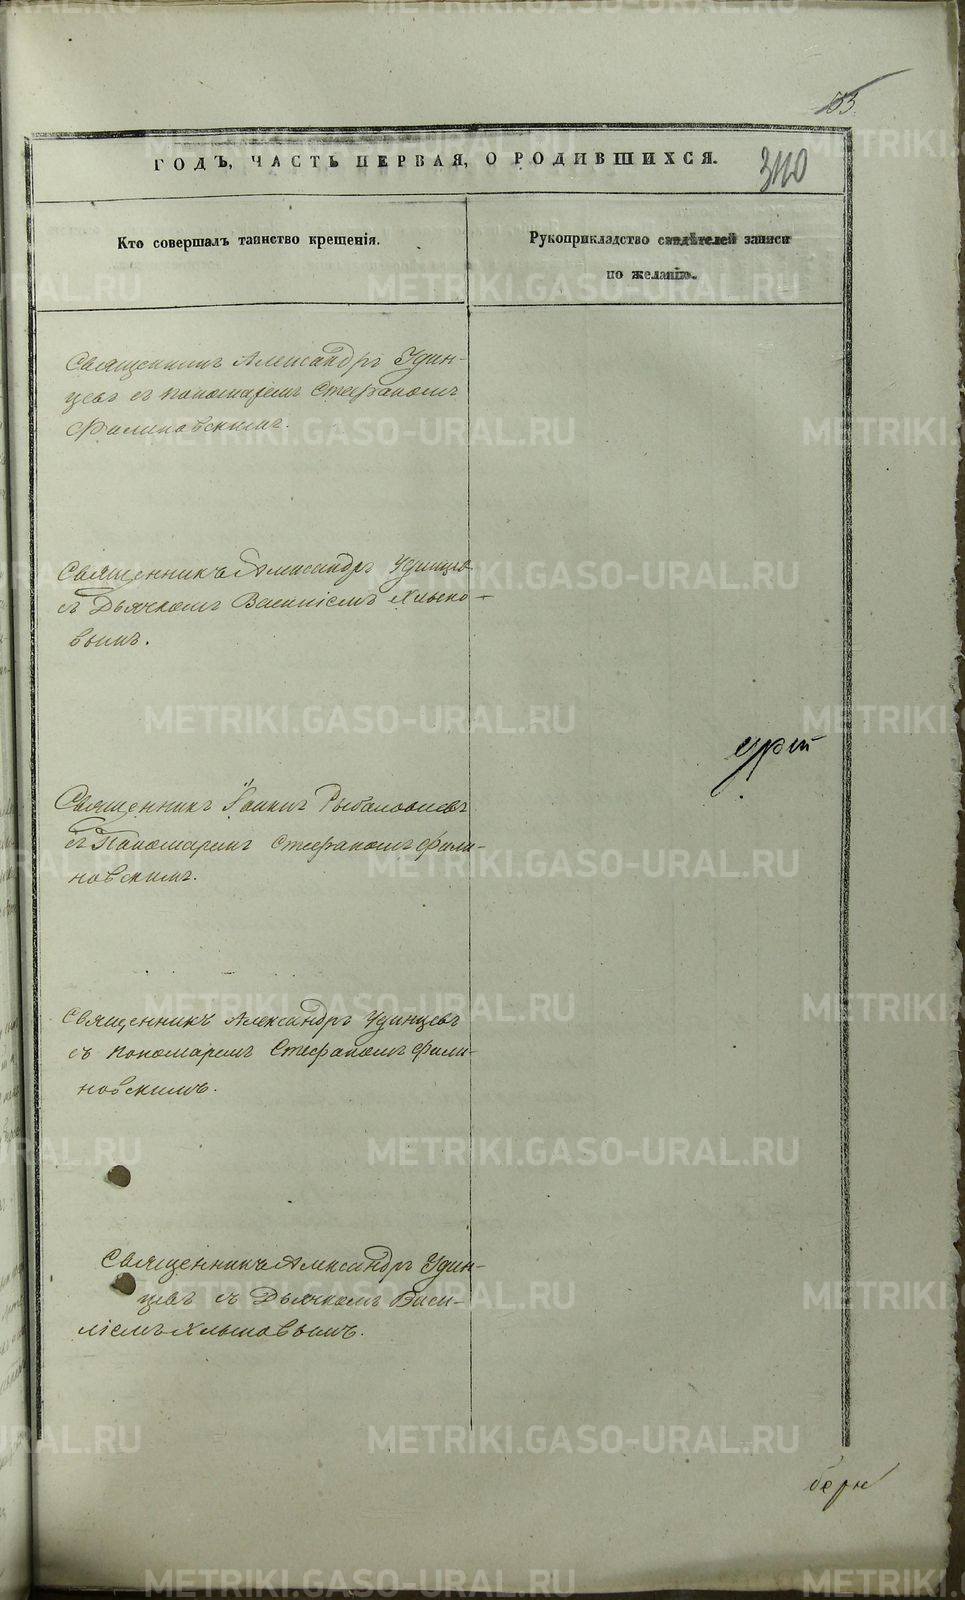 53
ГОДЪ, ЧАСТЬ ПЕРВАЯ, О РОДИВШИХСЯ.
310
Кто совершалъ таинство крещенія.
Рукоприкладство свидѣтелей записи
по желанію.
Священникъ Александръ Удин-
цевъ съ пономаремъ Стефаномъ
Филиновскимъ.
Священникъ Александръ Удинцевъ
съ Дьячкомъ Василіемъ
вымъ.
Священникъ Іоаннъ
съ Пономаремъ Стефаномъ Фили-
новскимъ.
Священникъ Александръ Удинцевъ
съ пономаремъ Стефаномъ Фили-
новскимъ.
Священникъ Александръ Удин-
цевъ съ Дьячкомъ Васи-
ліемъ
METRIKI.GASO-URAL.RU